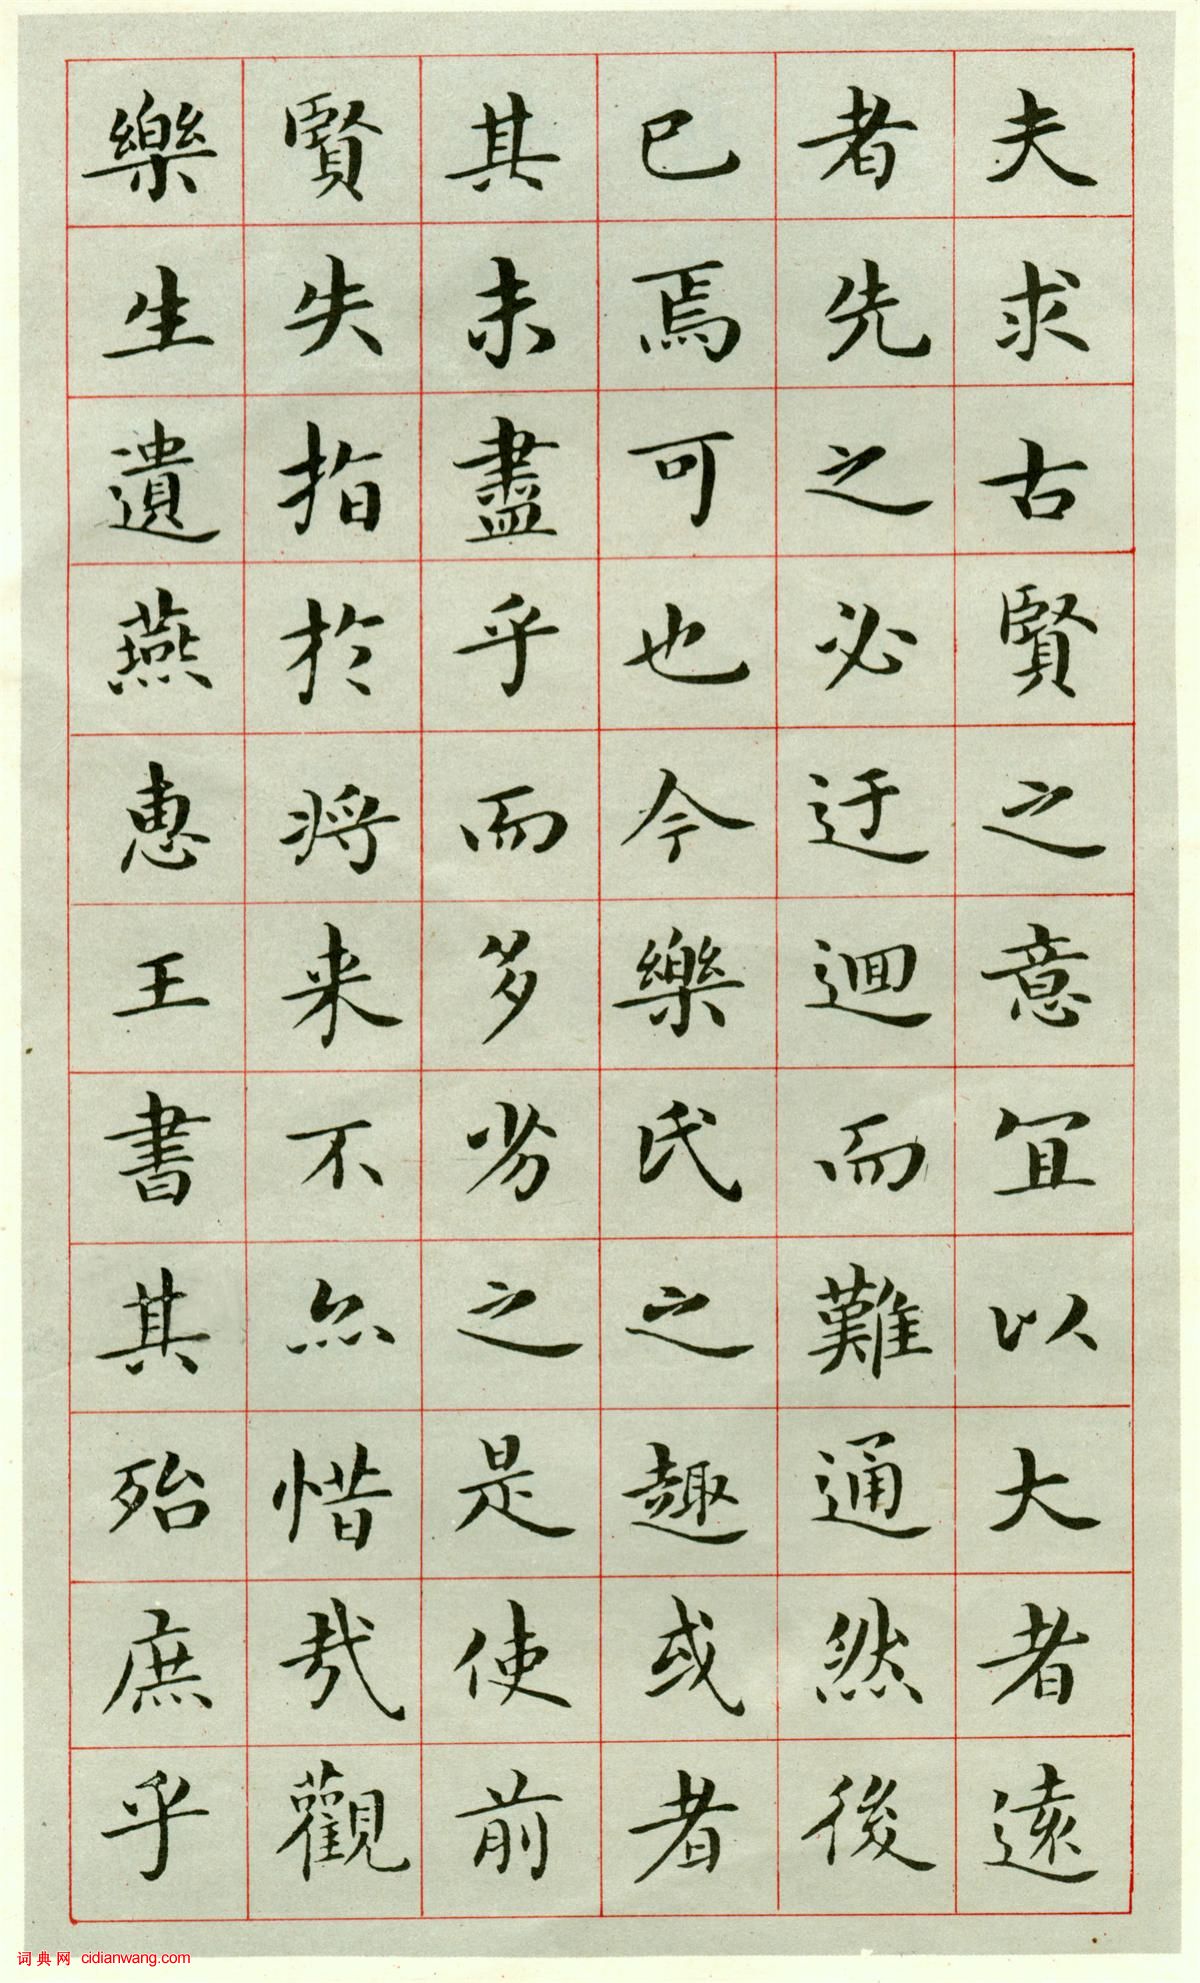 夫求古賢之意宜以大者遠
者先之必迂迴而難通然後
已焉可也今樂氏之趣或者
其未盡乎而多劣之是使前
賢失指於将来不尒惜哉觀
樂生遺燕惠王書其殆庶乎
词典网 cidianwang.com